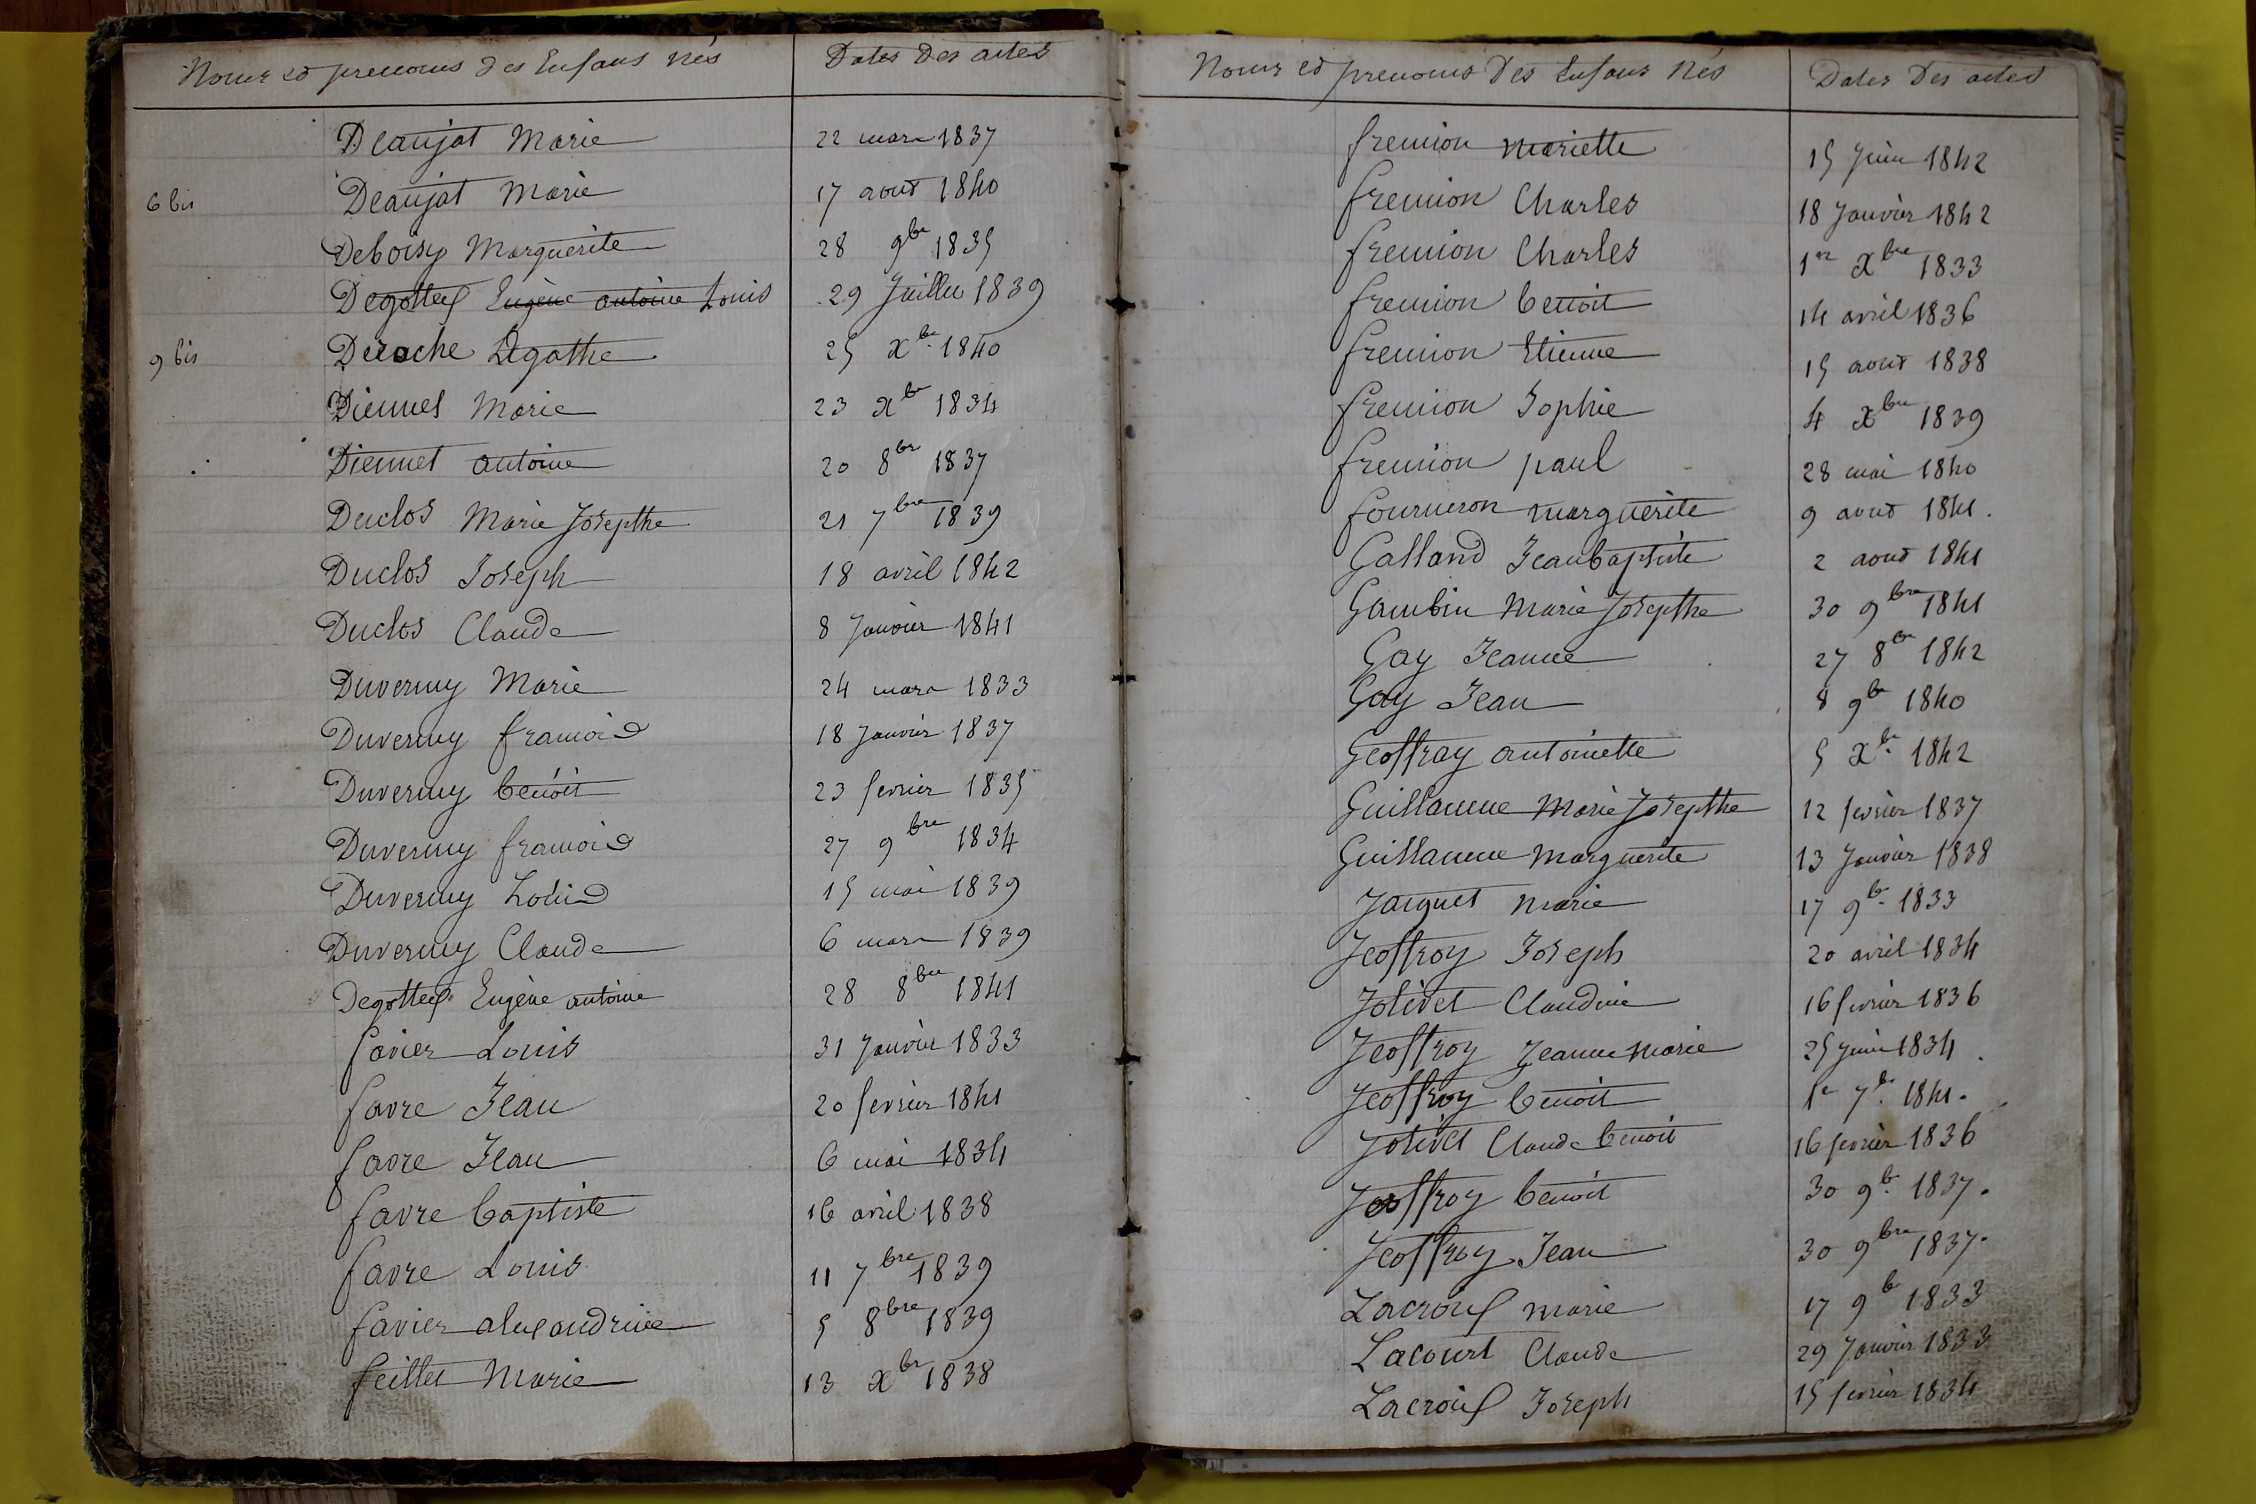 Noms et prenoms des Enfans nés Dates Des actes
Deaujat Marie 22 mars 1837
6 bis Deaujat Marie 17 aout 1840
Deboisy Marguerite 28 9bre 1835
Degotteux Eugène antoine Louis 29 Juillet 1839
9 bis Deroche Agathe 25 xbre 1840
Diennet Marie 23 xbre 1834
Diennet antoine 20 8bre 1837
Duclos Marie Josepthe 21 7bre 1839
Duclos Joseph 18 avril 1842
Duclos Claude 8 Janvier 1841
Duvernuy Marie 24 mars 1833
Duvernuy francois 18 Janvier 1837
Duvernuy benoit 23 fevrier 1835
Duvernuy francois 27 9bre 1834
Duvernuy Louis 15 mai 1839
Duvernuy Claude 6 mars 1839
Degotteux Eugène antoine 28 8bre 1841
favier Louis 31 Janvier 1833
favre Jean 20 fevrier 1841
favre Jean 6 mai 1834
favre baptiste 16 avril 1838
favre Louis 11 7bre 1839
favier alexandrine 5 8bre 1839
feillet Marie 13 xbre 1838
Noms et prenoms Des Enfans nés Dates Des actes
fremion mariette 15 Juin 1842
fremion Charles 18 Janvier 1842
fremion Charles 1er xbre 1833
fremion benoit 14 avril 1836
fremion Etienne 15 aout 1838
fremion Sophie 4 xbre 1839
fremion paul 28 mai 1840
fourneron marguerite 9 aout 1841.
Galland Jean baptiste 2 aout 1841
Gambin Marie Josepthe 30 9bre 1841
Gay Jeanne 27 8bre 1842
Gay Jean 8 9bre 1840
Geoffray antoinette 5 xbre 1842
Guillaume Marie Josepthe 12 fevrier 1837
Guillaume Marguerite 13 Janvier 1838
Jacquet marie 17 9bre 1833
Jeoffroy Joseph 20 avril 1834
Jolivet Claudine 16 fevrier 1836
Jeoffroy Jeanne Marie 25 Juin 1834
Jeoffroy benoit 1er 7bre 1841.
Jolivet Claude benoit 16 fevrier 1836
Jeoffroy benoit 30 9bre 1837.
Jeoffroy Jean 30 9bre 1837.
Lacroix marie 17 9bre 1833
Lacourt Claude 29 Janvier 1833
Lacroix Joseph 15 fevrier 1834